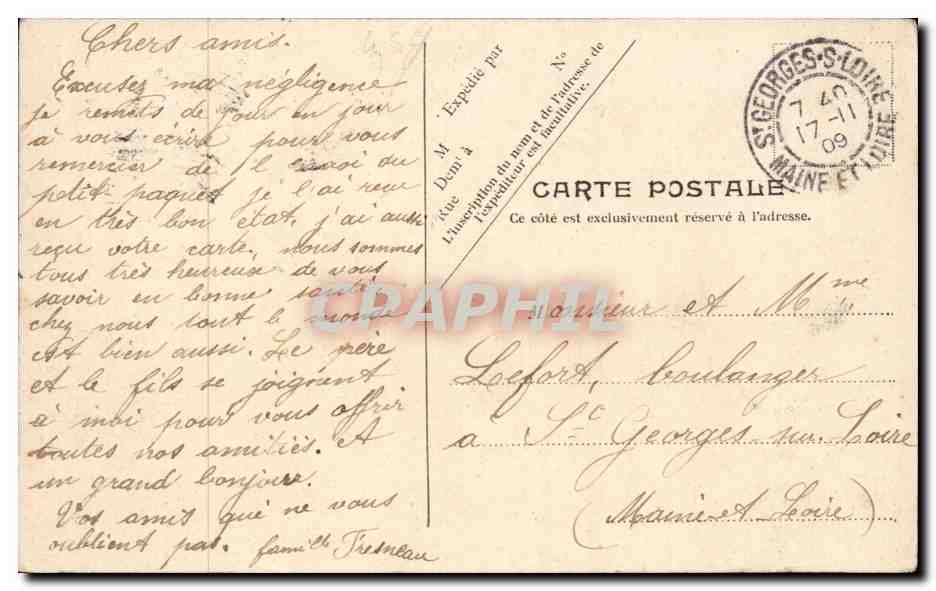 Chers amis.
Excusez ma négligence
je remets de jour en jour
à vous écrire pour vous
remercier de l'envoi du
petit paquet je l'ai reçu
en très bon état, j'ai aussi
reçu votre carte. nous sommes
tous très heureux de vous
savoir en bonne santé
chez nous tout le monde
est bien aussi. Le père
et le fils se joignent
à moi pour vous offrir
toutes nos amitiés. et
un grand bonjour.
Vos amis qui ne vous
oublient pas. famille Fresneau
Expédié par
M
Demt à
Rue
No
L'inscription du nom et de l'adresse de
l'expéditeur est facultative.
ST GEORGES-S-LOIRE
7 40
17-11
09
MAINE ET LOIRE
CARTE POSTALE
Ce côté est exclusivement réservé à l'adresse.
CPAPHIL
Monsieur et Mme
Lefort, boulanger
à St Georges sur Loire
(Maine et Loire)